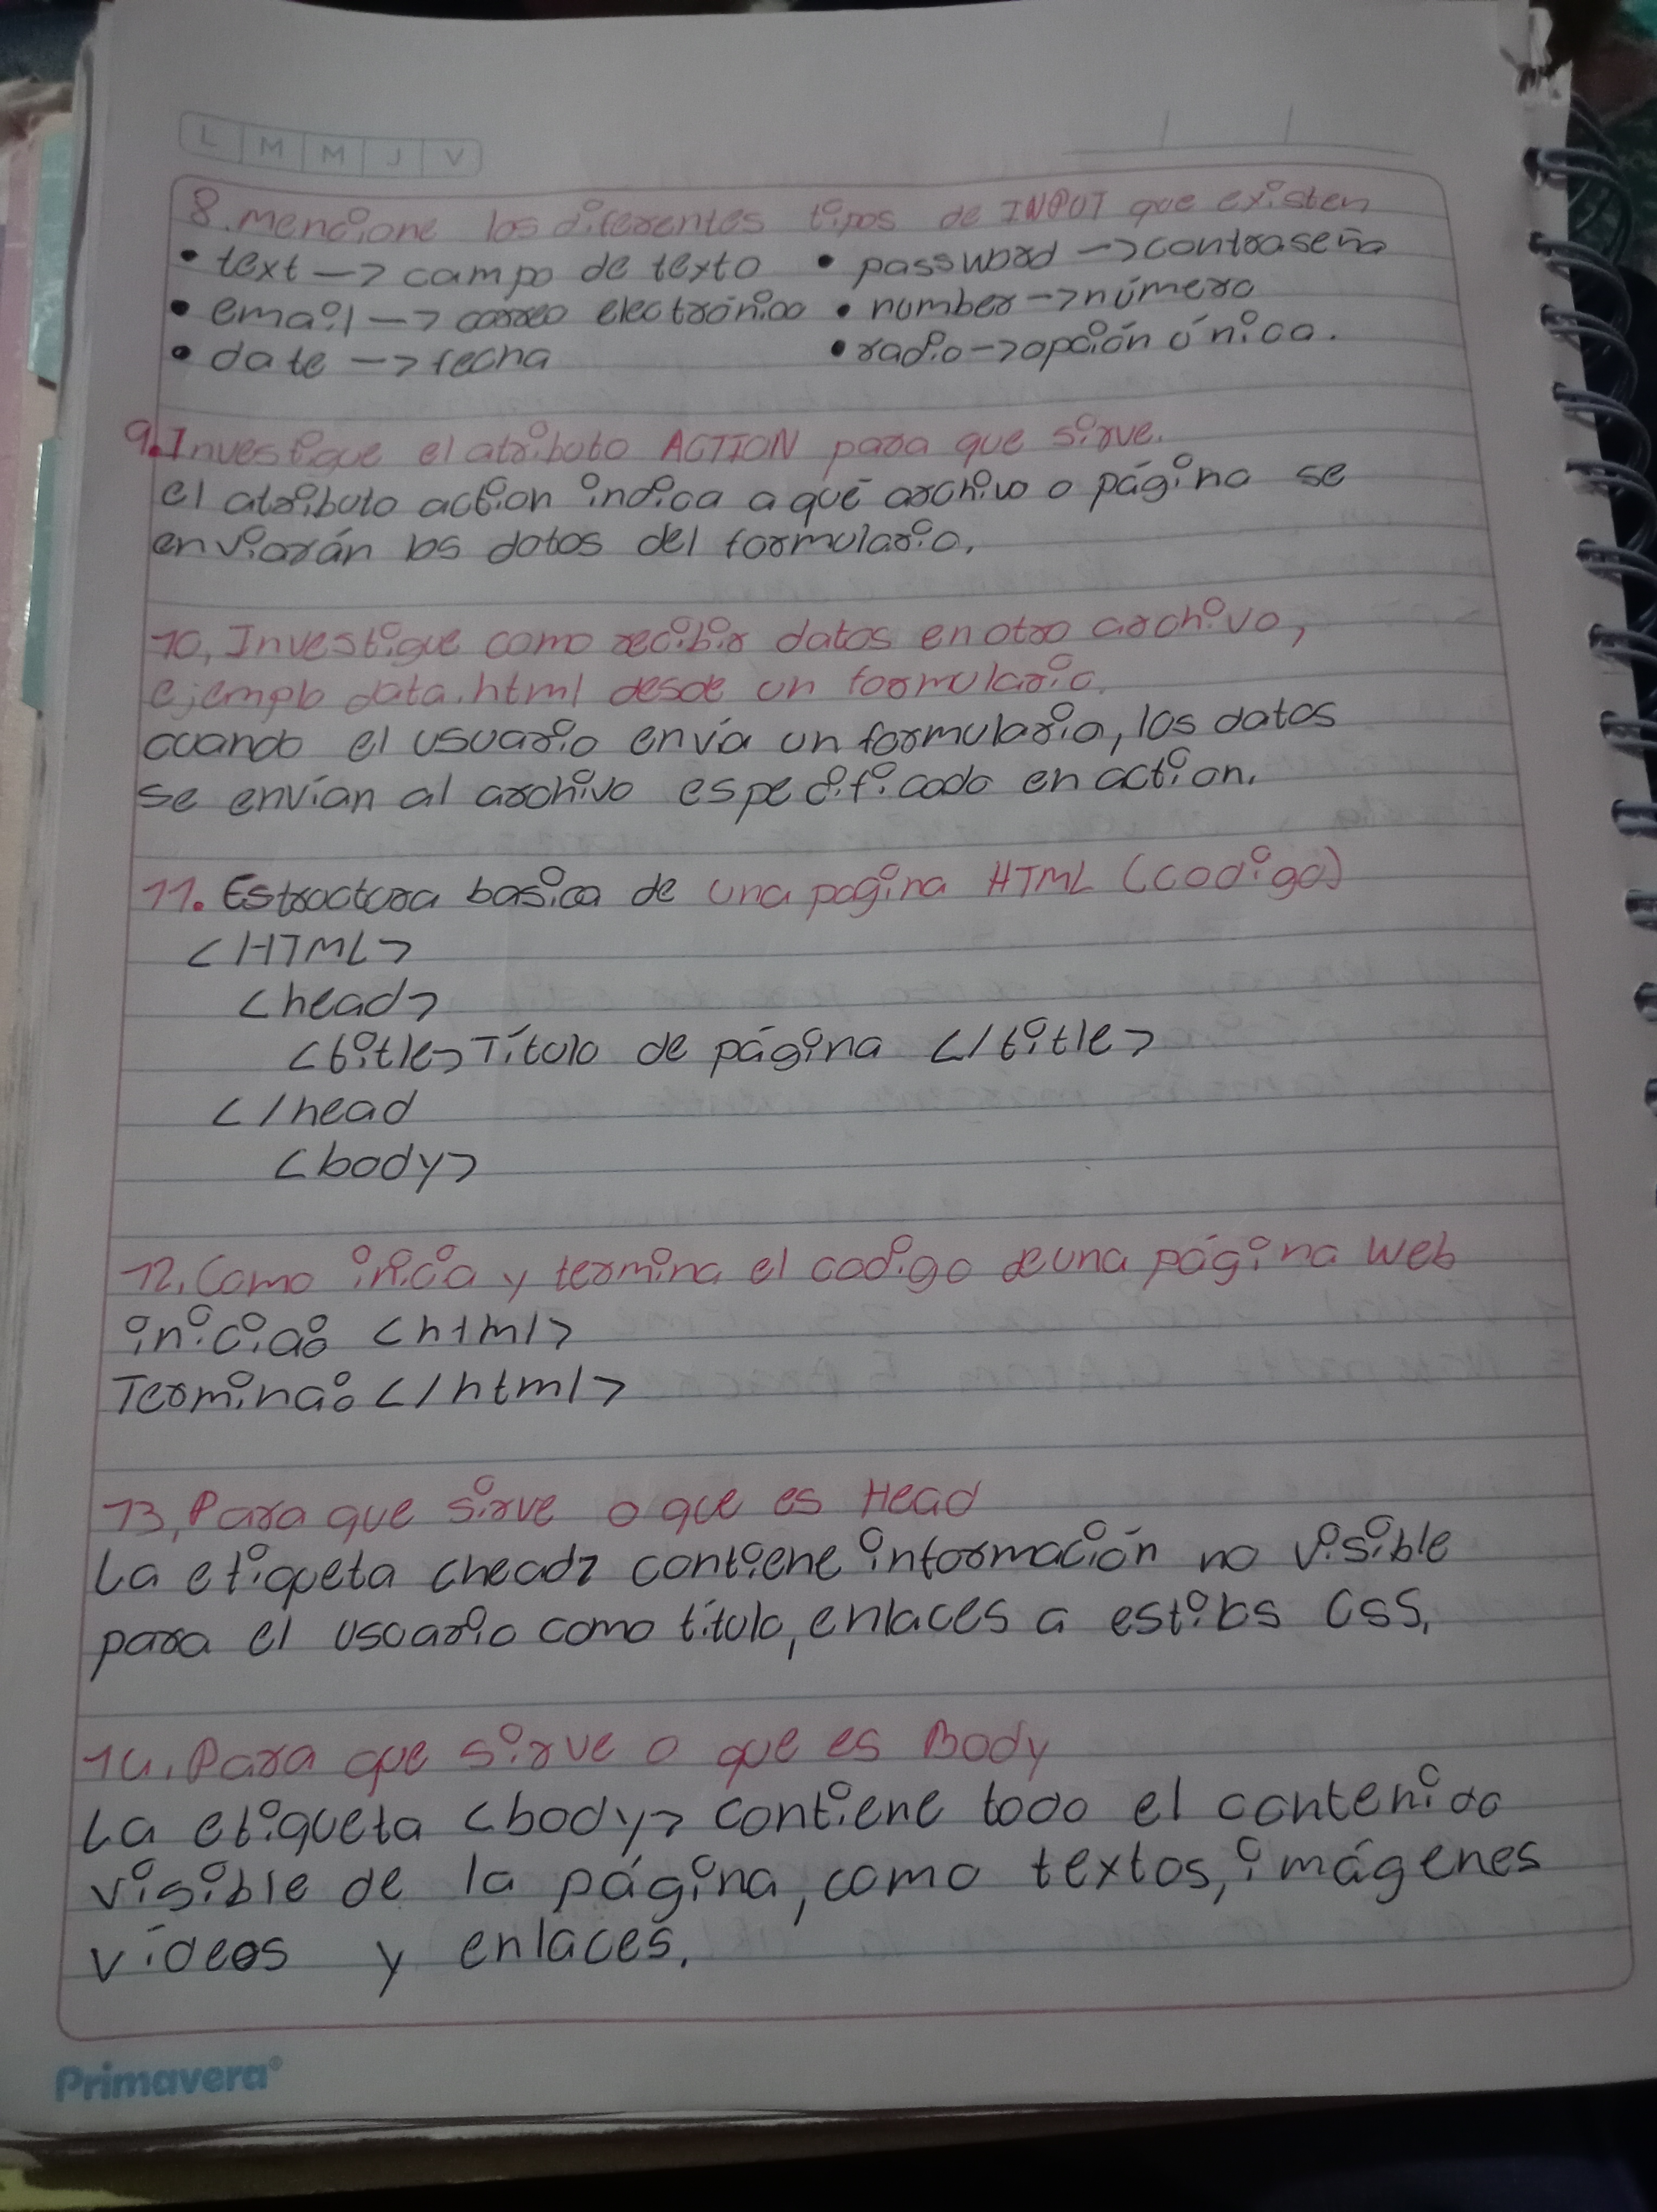 L M M J V
8. Mencione los diferentes tipos de INPUT que existen
• text —> campo de texto • password —> contraseña
• email —> correo electrónico • number —> número
• date —> fecha • radio —> opción única.
9. Investigue el atributo ACTION para que sirve.
el atributo action indica a qué archivo o página se
enviarán los datos del formulario.
10. Investigue como recibir datos en otro archivo,
ejemplo data.html desde un formulario.
cuando el usuario envía un formulario, los datos
se envían al archivo especificado en action.
11. Estructura basica de una pagina HTML (codigo)
<HTML>
<head>
<title> Título de página </title>
</head
<body>
12. Como inicia y termina el codigo de una página web
inicia: <html>
Termina: </html>
13. Para que sirve o que es Head
La etiqueta <head> contiene información no visible
para el usuario como título, enlaces a estilos CSS.
14. Para que sirve o que es Body
La etiqueta <body> contiene todo el contenido
visible de la página, como textos, imágenes
vídeos y enlaces.
Primavera®